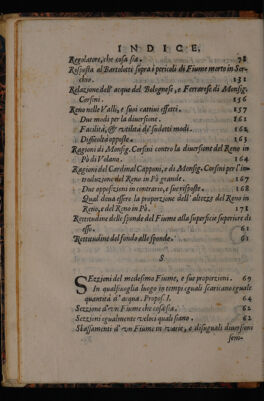 INDICE.
Regolatore, che cosa sia. 78
Risposta al Bartolotti sopra i pericoli di Fiume morto in Ser-
chio. 131
Relazione dell'acque del Bolognese, e Ferrarese di Monsig.
Corsini. 156
Reno nelle Valli, e suoi cattivi effetti. 157
Due modi per la diversione. 161
Facilità, & utilità de' sudetti modi. 162
Difficoltà opposte. 163
Ragioni di Monsig. Corsini contro la diversione del Reno in
Pò di Volana. 164
Ragioni del Cardinal Capponi, e di Monsig. Corsini per l'in-
troduzione del Reno in Pò grande. 167
Due opposizioni in contrario, e sue risposte. 168
Qual deva essere la proporzione dell'altezze del Reno in
Reno, e del Reno in Pò. 171
Rettitudine delle sponde del Fiume alla superficie superiore di
esso. 61
Rettitudine del fondo alle sponde. 61
S
SEzzioni del medesimo Fiume, e sue proporzioni. 69
In qualsivoglia luogo in tempi eguali scaricano eguale
quantità d'acqua. Propos. I. 64
Sezzione d'un Fiume che cosa sia. 62
Sezzioni egualmente veloci quali siano. 62
Sbassamenti d'un Fiume in varie, e disuguali diversioni
sem-